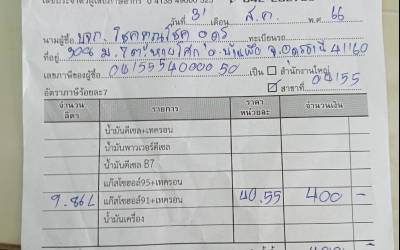 เลขประจำตัวผู้เสียภาษีอากร 0 4135 49000 325
วันที่ 31 เดือน ส.ค. พ.ศ. 66
นามผู้ซื้อ บจก. โชคคูณโชค อุดร ทะเบียนรถ
ที่อยู่ 208 ม.7 ต. อ.บ้านผือ จ.อุดรธานี 41160
เลขภาษีของผู้ซื้อ 0415554000050 เป็น สำนักงานใหญ่
อัตราภาษีร้อยละ7 สาขาที่ 04155
จำนวนลิตร รายการ ราคาหน่วยละ จำนวนเงิน
น้ำมันดีเซล+เทครอน
น้ำมันพาวเวอร์ดีเซล
น้ำมันดีเซล B7
แก๊สโซฮอล์95+เทครอน
9.86L แก๊สโซฮอล์91+เทครอน 40.55 400 -
น้ำมันเครื่อง